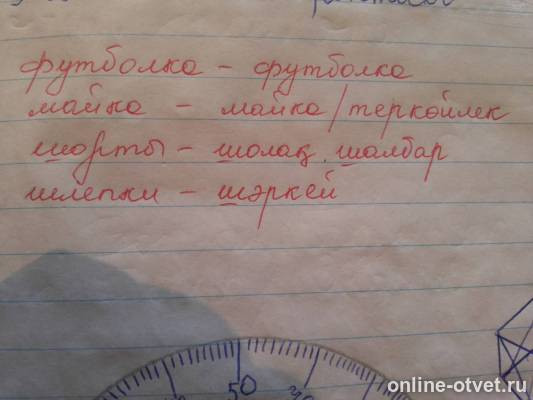 футболка - футболка
майка - майка/теркөйлек
шорты - шолақ шалбар
шлепки - шәркей
50
online-otvet.ru